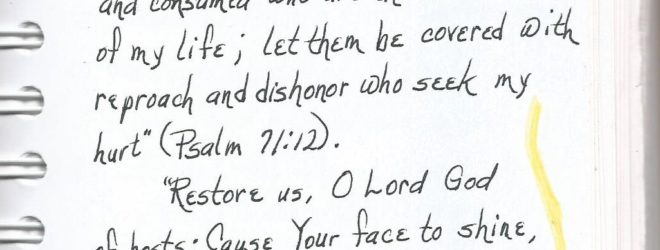 and consumed who
of my life; let them be covered with
reproach and dishonor who seek my
hurt" (Psalm 71:12).
"Restore us, O Lord God
of hosts; Cause Your face to shine,